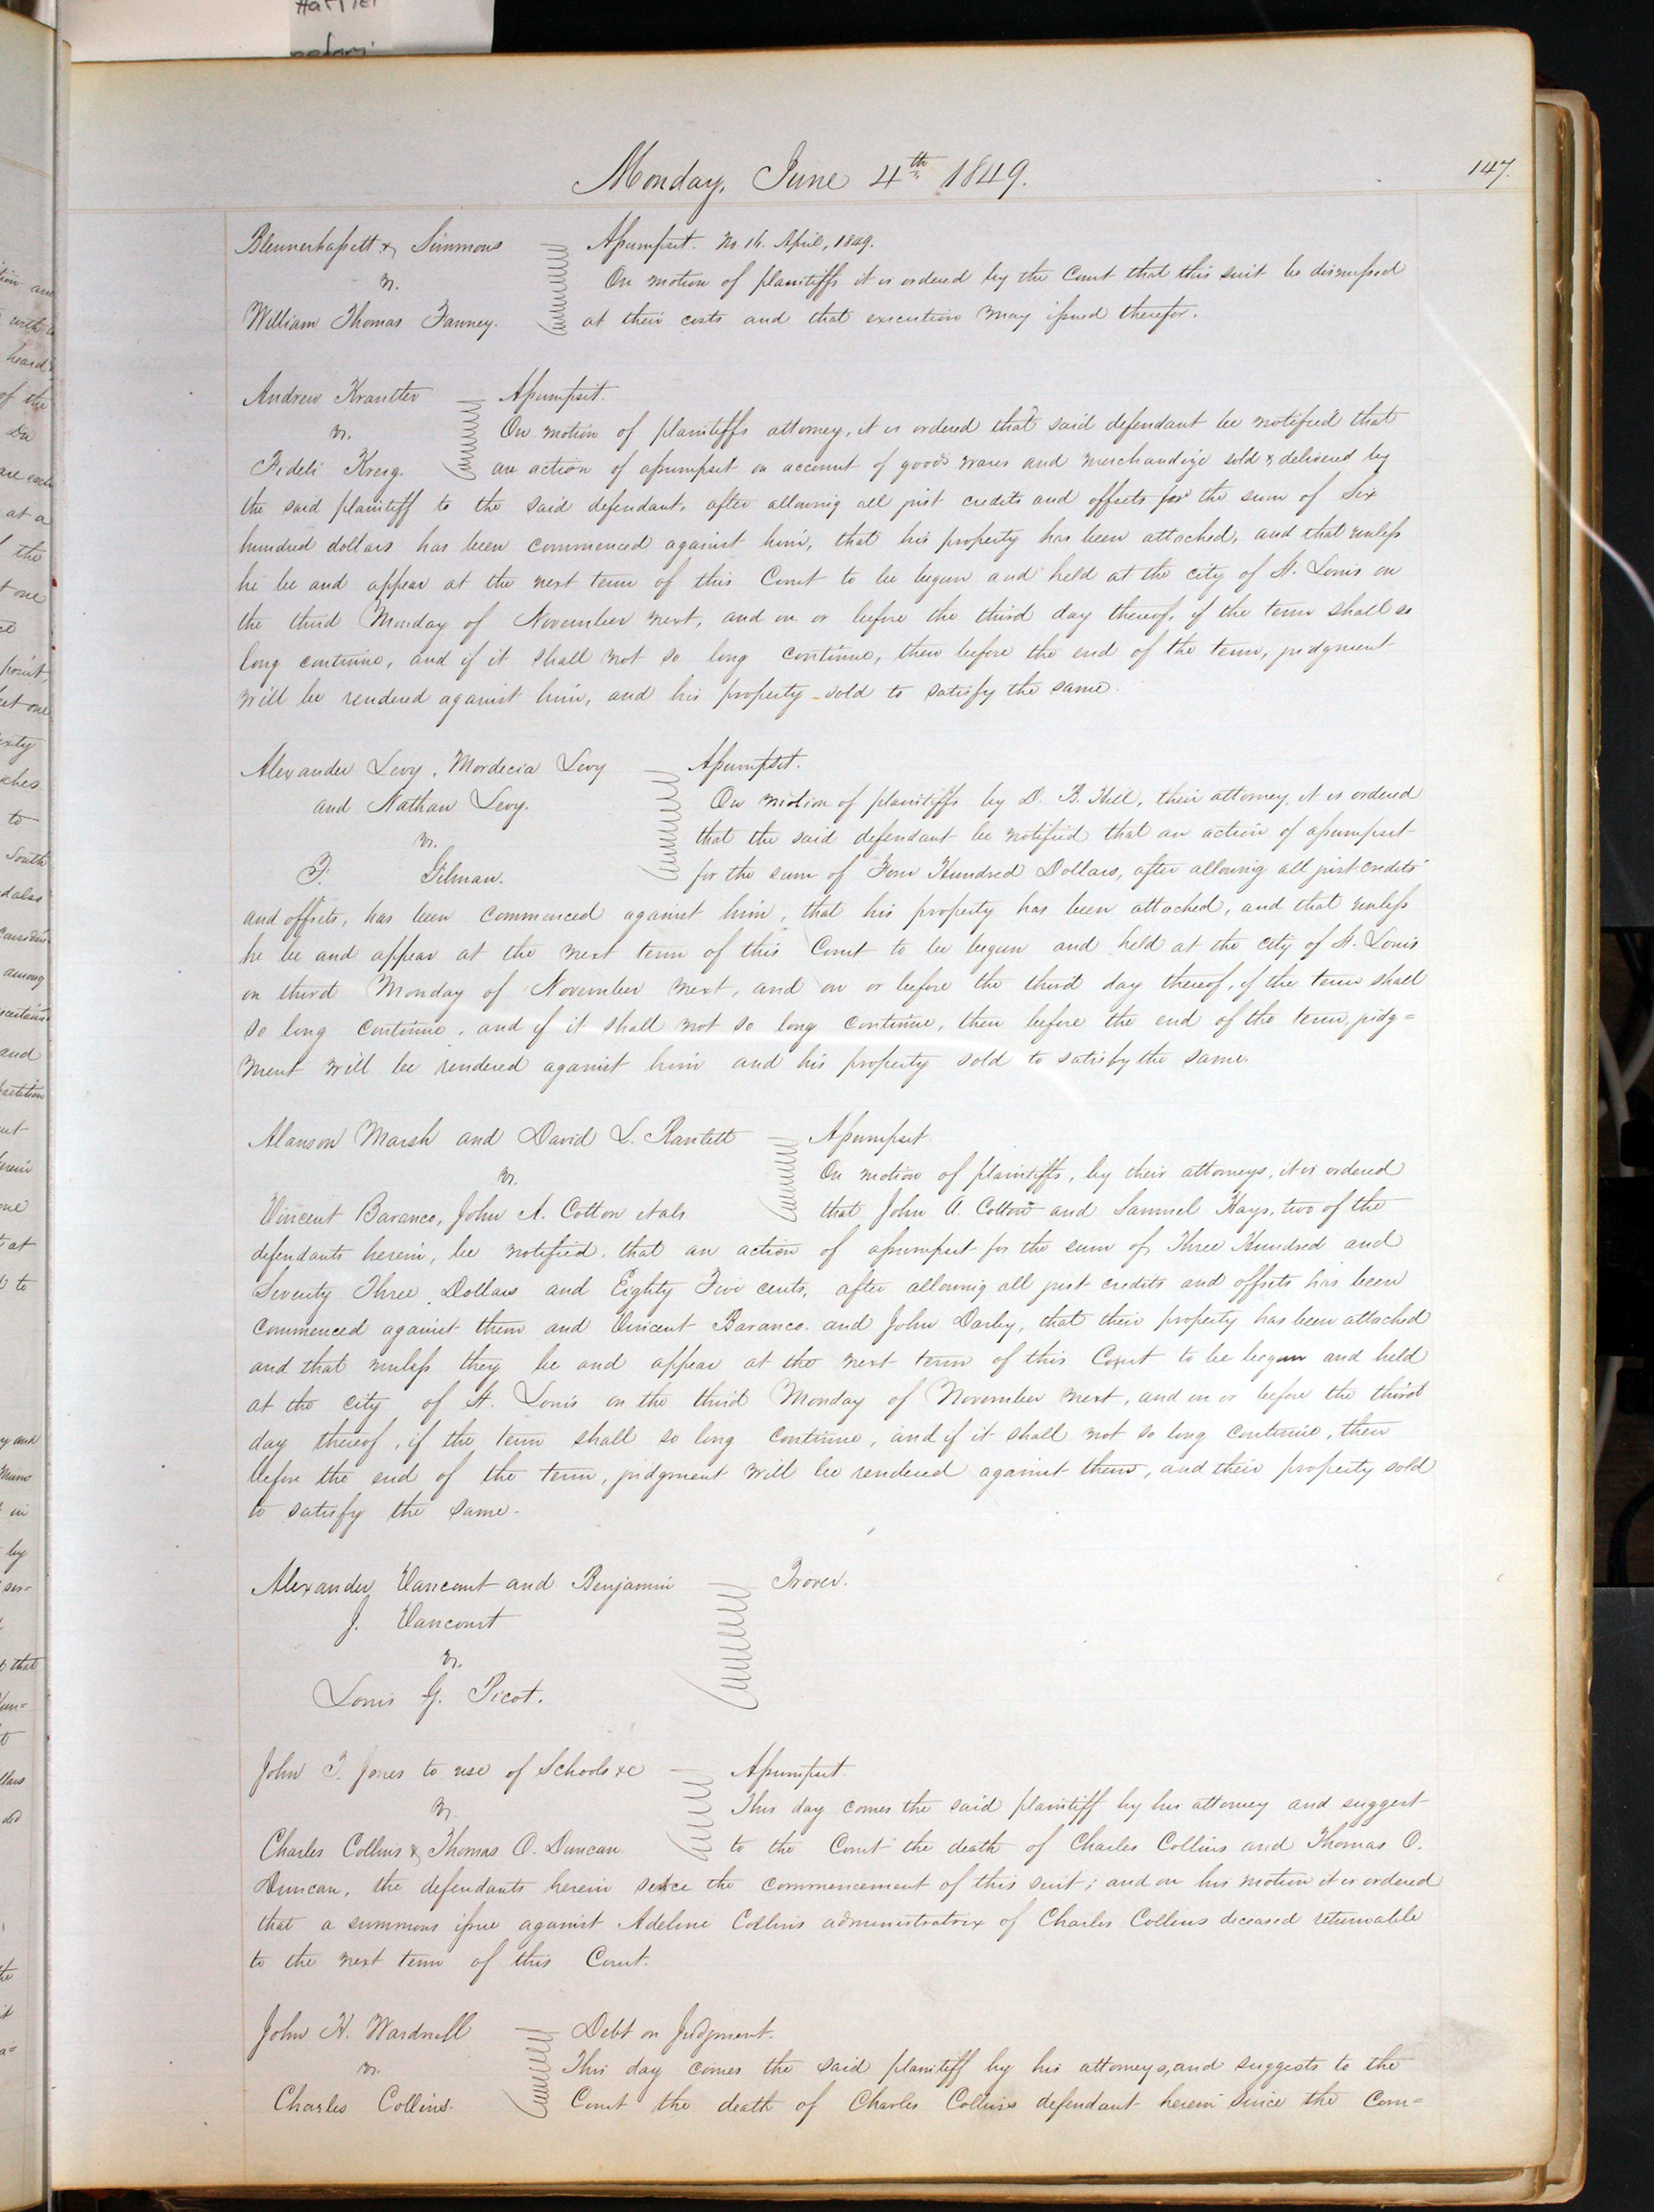 Harriet
Monday, June 4th 1849.
147.
Blennerhassett & Simmons
vs.
William Thomas Fanney.
Assumpsit. No 16. April, 1849.
On motion of plaintiffs it is ordered by the Court that this suit be dismissed
at their costs and that execution may issued therefor.
Andrew Krautter
vs.
Fideli Kreig.
Assumpsit.
On motion of plaintiffs attorney, it is ordered that said defendant be notified that
an action of assumpsit on account of goods wares and merchandize sold & delivered by
the said plaintiff to the said defendant, after allowing all just credits and offsets for the sum of Six
hundred dollars has been commenced against him, that his property has been attached, and that unless
he be and appear at the next term of this Court to be begun and held at the city of St. Louis on
the third Monday of November next, and on or before the third day thereof, if the term shall so
long continue, and if it shall not so long continue, then before the end of the term, judgment
will be rendered against him, and his property sold to satisfy the same.
Alexander Levy, Mordecia Levy
and Nathan Levy.
vs.
F. Gilman.
Assumpsit.
On motion of plaintiffs by D. B. Hill, their attorney, it is ordered
that the said defendant be notified that an action of assumpsit
for the sum of Four Hundred Dollars, after allowing all just credits
and offsets, has been commenced against him, that his property has been attached, and that unless
he be and appear at the next term of this Court to be begun and held at the city of St. Louis
on third Monday of November next, and on or before the third day thereof, if the term shall
so long continue, and if it shall not so long continue, then before the end of the term, judg=
ment will be rendered against him and his property sold to satisfy the same.
Alanson Marsh and David L. Rantlett
vs.
Vincent Baranco, John A. Cotton et als
Assumpsit.
On motion of plaintiffs, by their attorneys, it is ordered
that John A. Cotton and Samuel Hays, two of the
defendants herein, be notified, that an action of assumpsit for the sum of Three Hundred and
Seventy Three Dollars and Eighty Five cents, after allowing all just credits and offsets has been
commenced against them and Vincent Baranco. and John Darby, that their property has been attached
and that unless they be and appear at the next term of this Court to be begun and held
at the city of St. Louis on the third Monday of November next, and on or before the third
day thereof, if the term shall so long continue, and if it shall not so long continue, then
before the end of the term, judgment will be rendered against them, and their property sold
to satisfy the same.
Alexander Vancourt and Benjamin
J. Vancourt
vs.
Louis G. Picot.
Trover.
John T. Jones to use of Schools &c
vs.
Charles Collins & Thomas O. Duncan.
Assumpsit.
This day comes the said plaintiff by his attorney and suggest
to the Court the death of Charles Collins and Thomas O.
Duncan, the defendants herein since the commencement of this suit; and on his motion it is ordered
that a summons issue against Adeline Collins administratrix of Charles Collins deceased returnable
to the next term of this Court.
John H. Wardnell
vs.
Charles Collins.
Debt on Judgment.
This day comes the said plaintiff by his attorneys, and suggests to the
Court the death of Charles Collins defendant herein since the com=